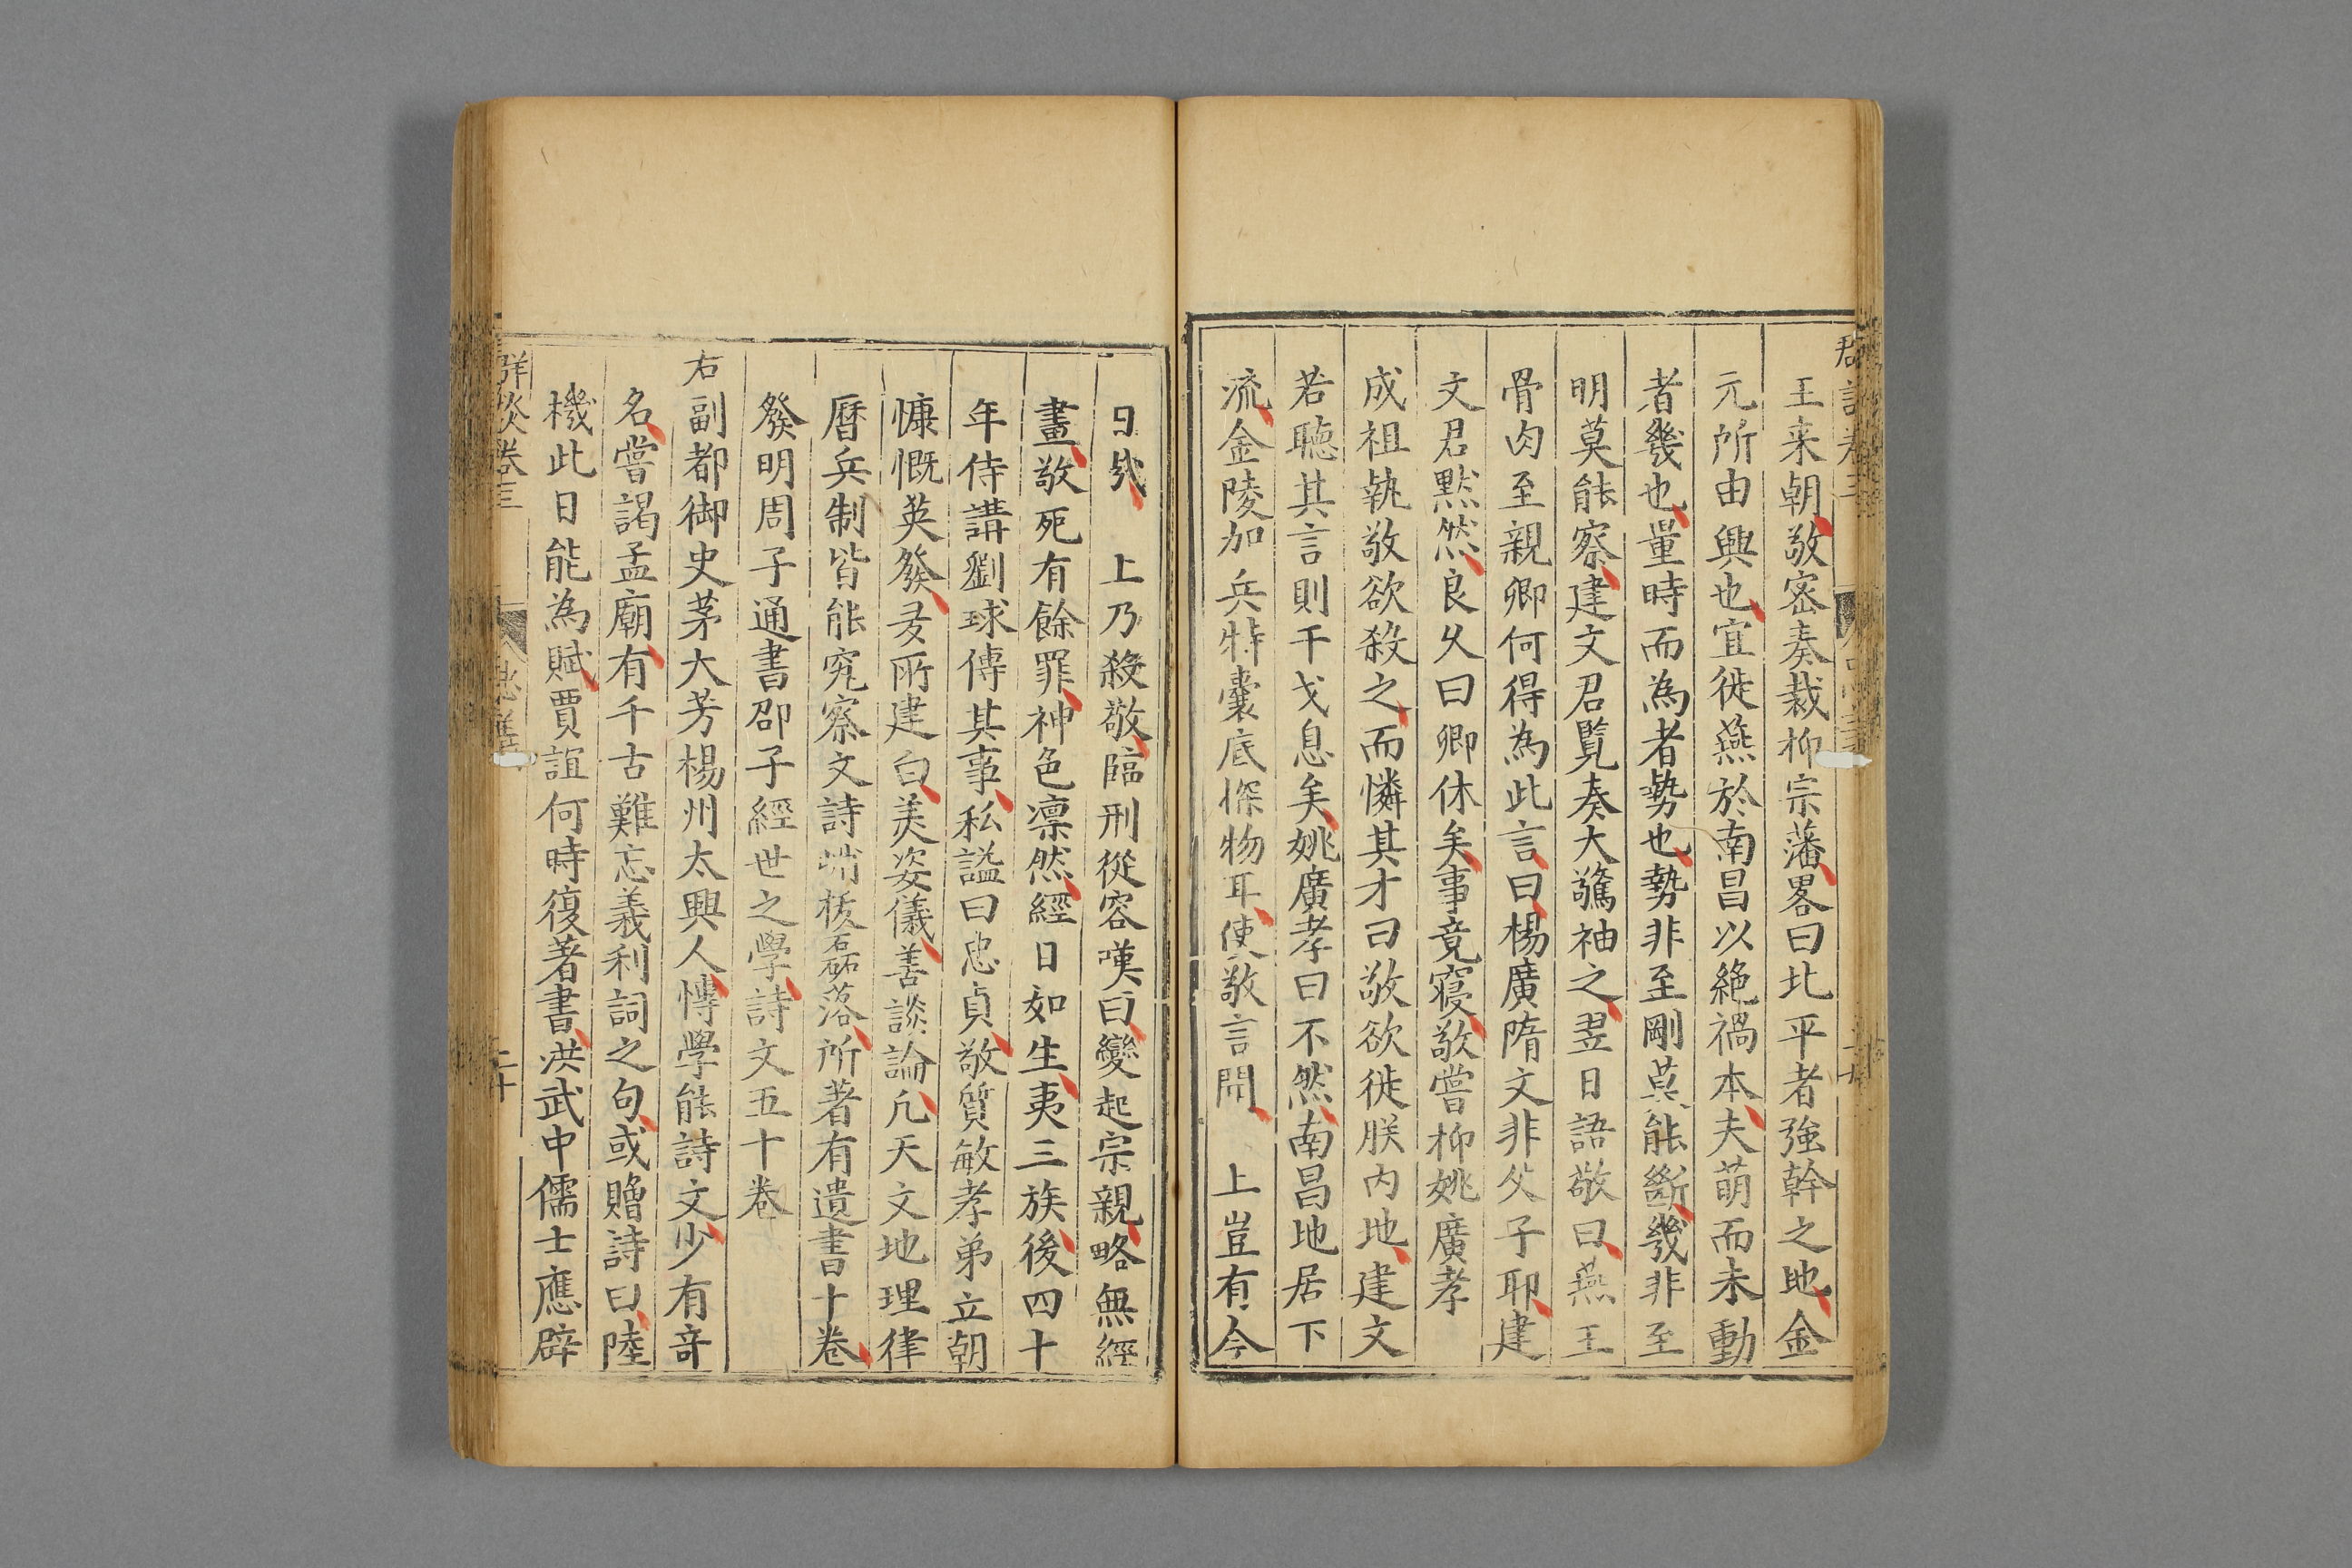 王来朝敬密奏裁抑宗藩畧曰北平者強幹之地金
元所由興也宜徙燕於南昌以絶禍本夫萌而未動
者幾也量時而為者勢也勢非至剛莫能斷幾非至
明莫能察建文君覽奏大驚袖之翌日語敬曰燕王
骨肉至親卿何得為此言曰楊廣隋文非父子耶建
文君默然良久曰卿休矣事竟寢敬嘗抑姚廣孝
成祖執敬欲殺之而憐其才曰敬欲徙朕内地建文
若聴其言則干戈息矣姚廣孝曰不然南昌地居下
流金陵加兵特囊底探物耳使敬言聞 上豈有今
日㢤 上乃殺敬臨刑從容嘆曰變起宗親略無經
畫敬死有餘罪神色凛然經日如生夷三族後四十
年侍講劉球傳其事私謚曰忠貞敬質敏孝弟立朝
慷慨英發多所建白美姿儀善談論凡天文地理律
曆兵制皆能究察文詩峭拔磊落所著有遺書十卷
發明周子通書邵子經世之學詩文五十卷
右副都御史茅大芳楊州太興人愽學能詩文少有竒
名嘗謁孟廟有千古難忘義利詞之句或贈詩曰陸
機此日能為賦賈誼何時復著書洪武中儒士應辟
群談卷三 二十